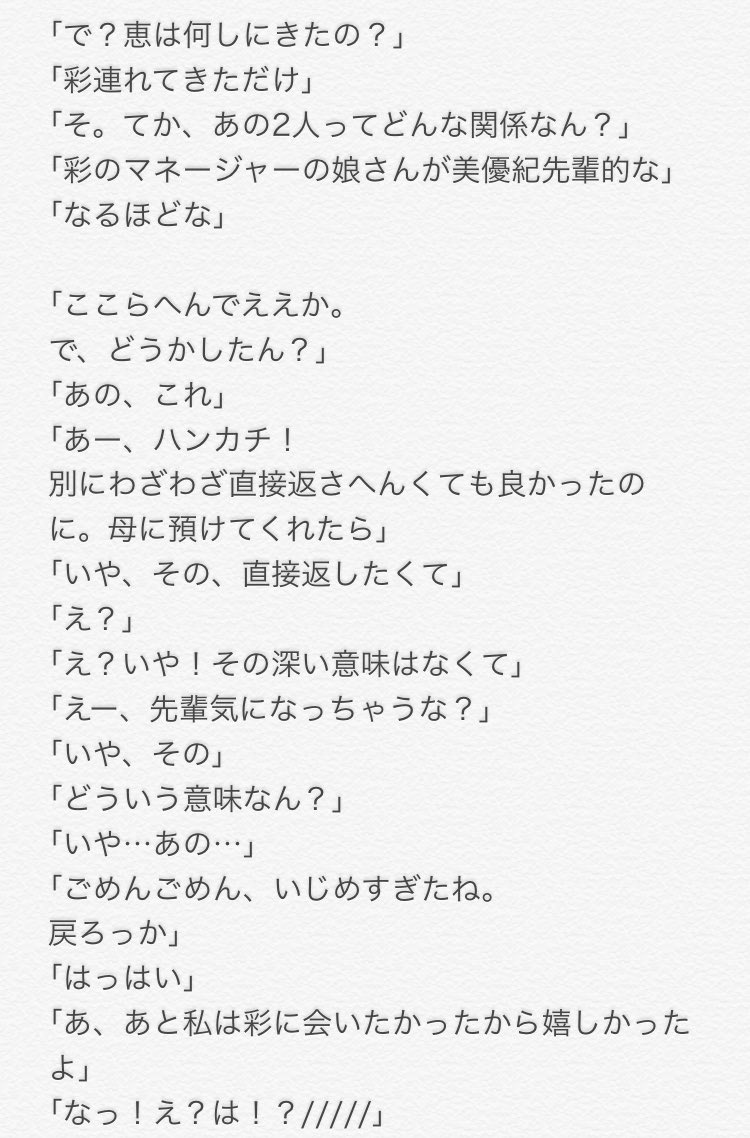 「で？恵は何しにきたの？」
「彩連れてきただけ」
「そ。てか、あの2人ってどんな関係なん？」
「彩のマネージャーの娘さんが美優紀先輩的な」
「なるほどな」
「ここらへんでええか。
で、どうかしたん？」
「あの、これ」
「あー、ハンカチ！
別にわざわざ直接返さへんくても良かったの
に。母に預けてくれたら」
「いや、その、直接返したくて」
「え？」
「え？いや！その深い意味はなくて」
「えー、先輩気になっちゃうな？」
「いや、その」
「どういう意味なん？」
「いや…あの…」
「ごめんごめん、いじめすぎたね。
戻ろっか」
「はっはい」
「あ、あと私は彩に会いたかったから嬉しかった
よ」
「なっ！え？は！？/////」